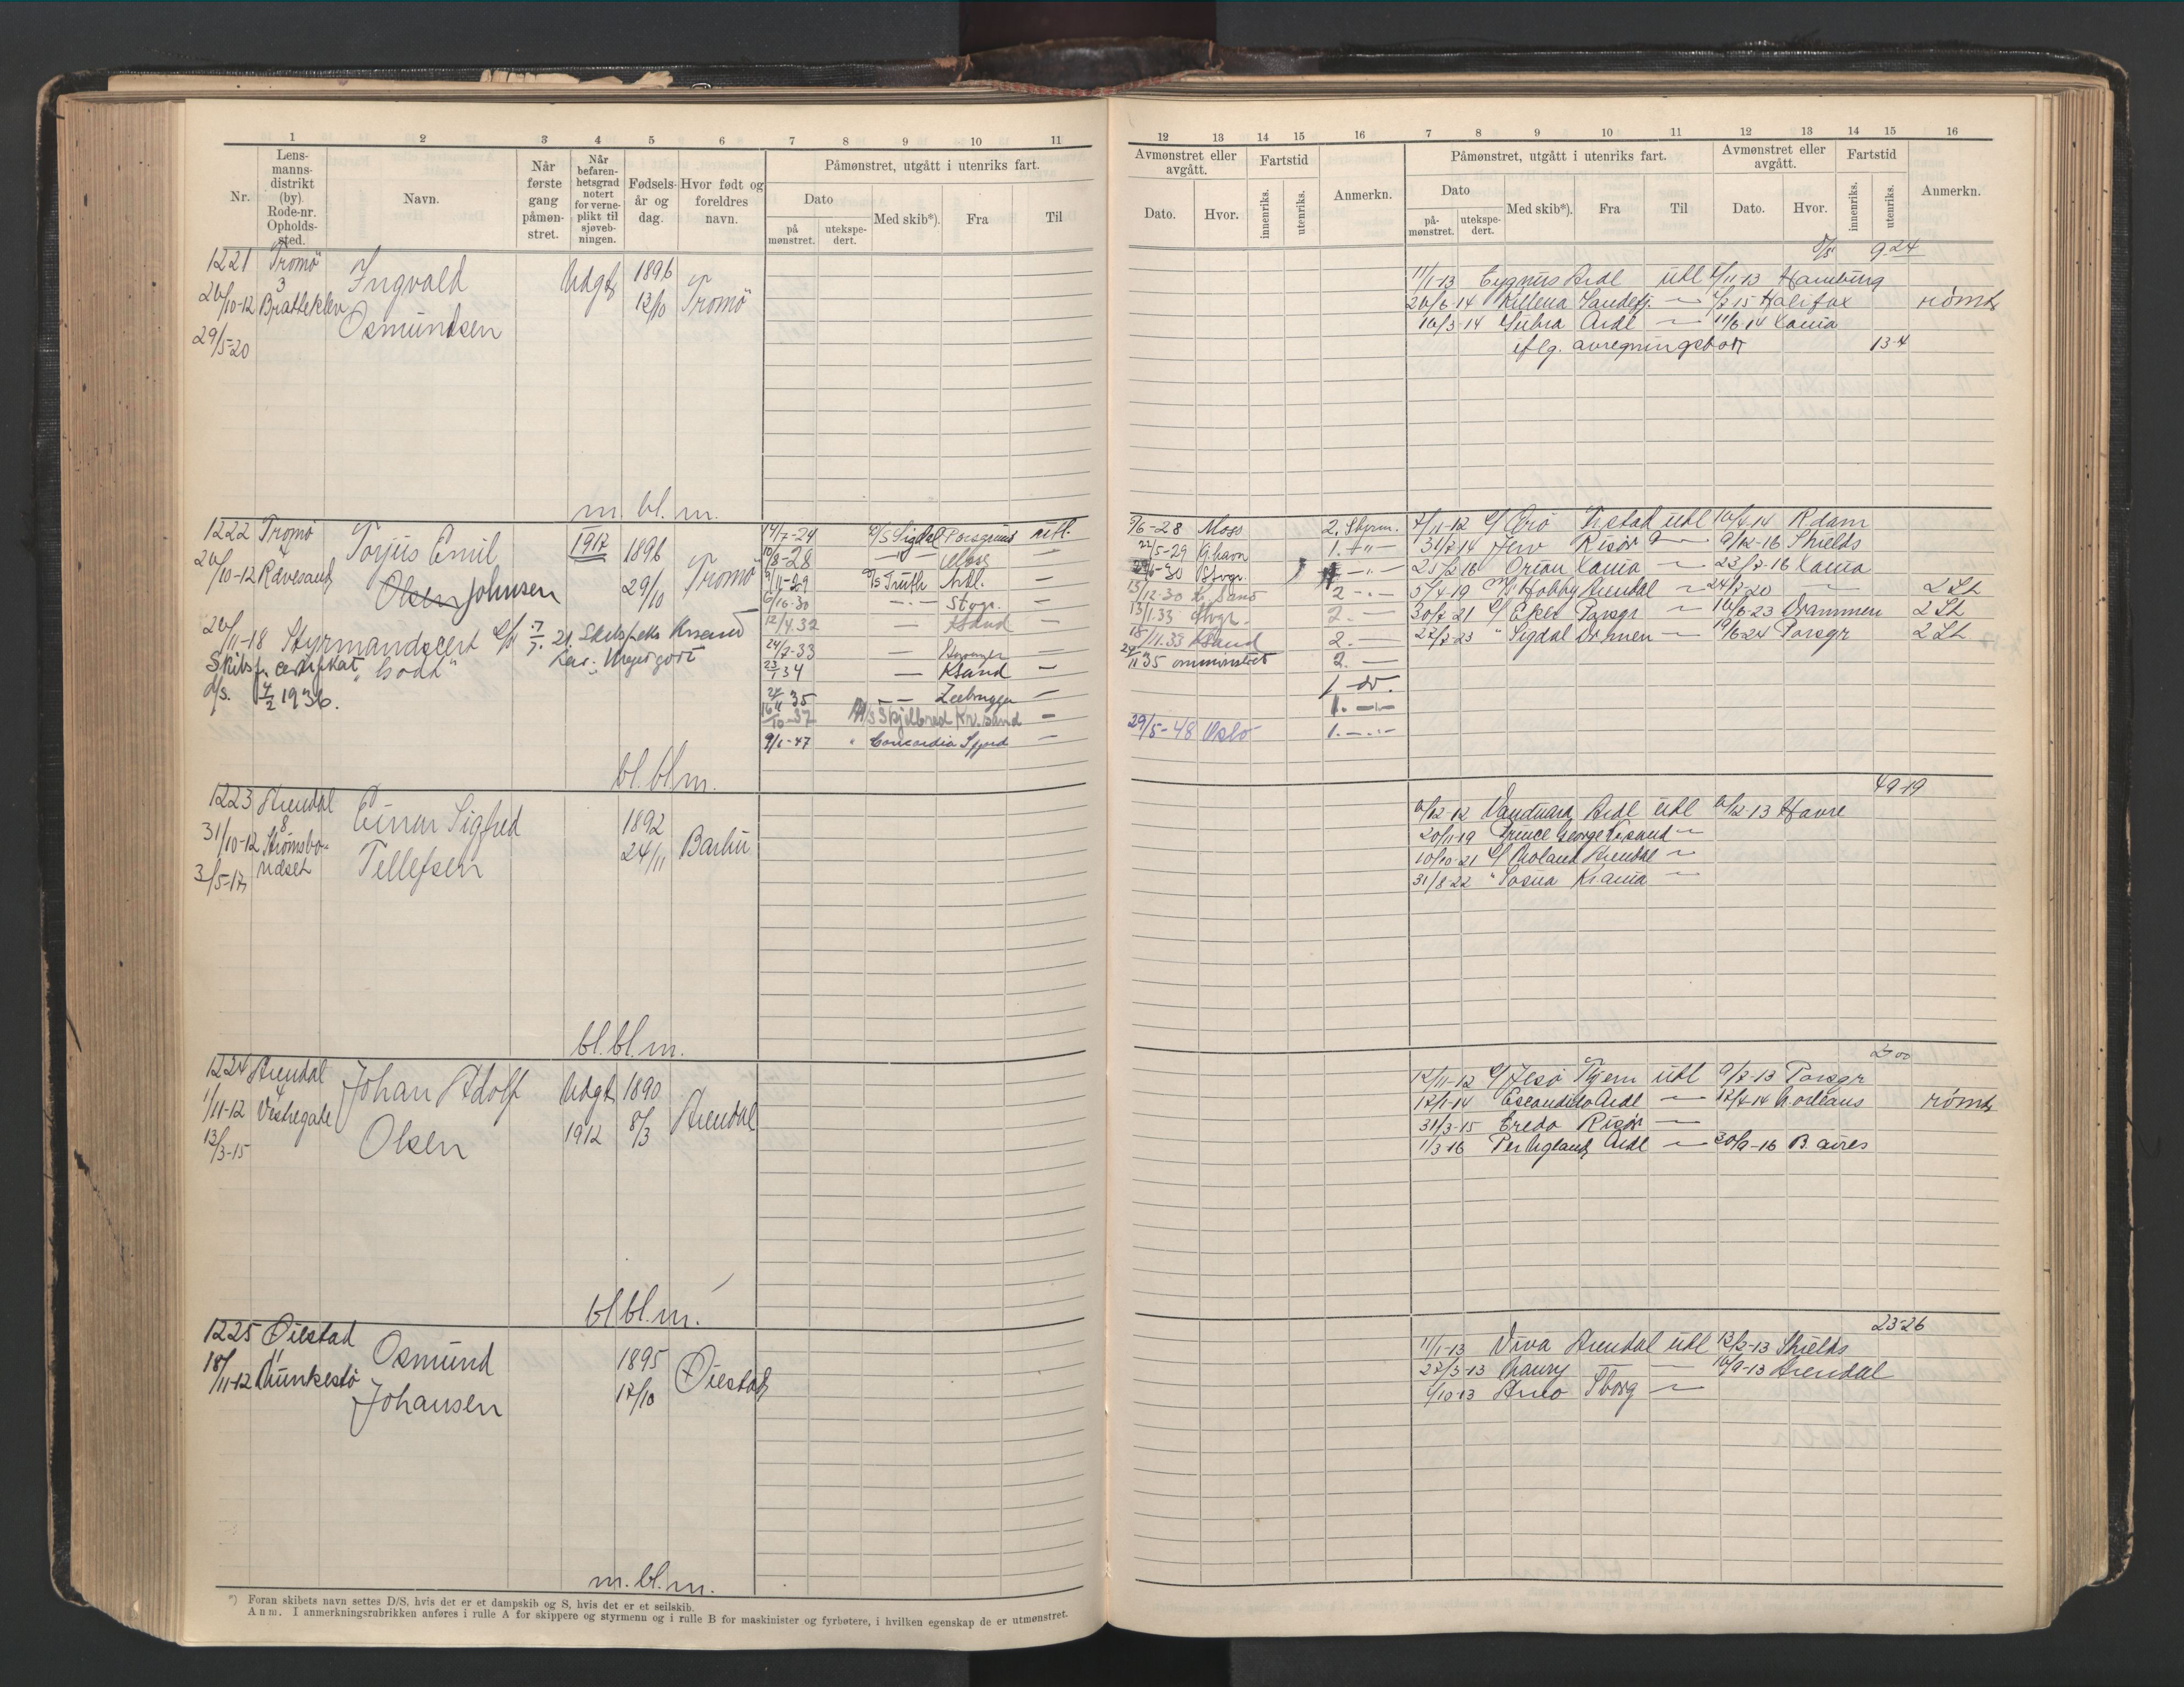 1 2 3 4 5 6 7 8 9 10 11
Nr.
Lens-
manns-
distrikt
(by).
Rode-nr.
Opholds-
sted.
Navn.
Når
første
gang
påmøn-
stret.
Når
befaren-
hetsgrad
notert
for verne-
plikt til
sjøveb-
ningen.
Fødsels-
år og
dag.
Hvor født og
foreldres
navn.
Påmønstret, utgått i utenriks fart.
Dato
på
mønstret.
utekspe-
dert.
Med skib*).
Fra
Til
1221 Tromö
3
26/10-12 Bratteklev
29/5-20
Ingvald
Osmundsen
Udgt
1896
13/10
Tromö
m. bl. m.
1222 Tromö
26/10-12 Revesand
Torjus Emil
Olsen Johnsen
1917
1896
29/10
Tromö
26/11-18 Styrmandscert
Skibsf. certifikat
d/s. 4/2 1936.
14/7-24 D/S Sigdal Porsgrund utl.
10/8-28 Moss
9/11-29 D/S Truth Ardl. —
6/10-30 Stvgr. —
12/4.32 — Ksand —
24/7-33 —
23/1 34 — Ksand —
35 Zeebrugge —
16/10-37 M/S Skjelbred Kr.sand —
9/1-47 " Concordia Sfjord —
bl. bl. m.
1223 Arendal
8
31/10-12 Strömsbo-
udset
3/5-17
Einar Sigfred
Tellefsen
1892
24/11
Barbu
bl. bl. m.
1224 Arendal
4
1/11-12 Vestregate
13/3-15
Johan Adolf
Olsen
Udgt
1912
1890
8/3
Arendal
bl. bl. m.
1225 Öiestad
11
18/11-12
Osmund
Johansen
1895
17/10
Öiestad
m. bl. m.
*) Foran skibets navn settes D/S, hvis det er et dampskib og S, hvis det er et seilskib.
Anm. I anmerkningsrubrikken anføres i rulle A for skippere og styrmenn og i rulle B for maskinister og fyrbøtere, i hvilken egenskap de er utmønstret.
12 13 14 15 16 7 8 9 10 11 12 13 14 15 16
Avmønstret eller
avgått.
Dato.
Hvor.
Fartstid
innenriks.
utenriks.
Anmerkn.
Påmønstret, utgått i utenriks fart.
Dato
på-
mønstret.
utekspe-
dert.
Med skib*).
Fra
Til
Avmønstret eller
avgått.
Dato.
Hvor.
Fartstid
innenriks.
utenriks.
Anmerkn.
9-24
11/1-13 Cygnus Ardl utl 6/11-13 Hamburg
26/6-14 Sandefj. — 4/7-15 Halifax römt
16/3-14 Ardl — 11/6-14 Xania
iflg. avregningsbok 13-4
9/6-28 Moss 2. Styrm.
22/5-29 G.havn 1. —"—
30 Stvgr.
13/12-30 K.Sand 2 —"—
13/1.33 Stvgr. 2. —
18/11.33 Ksand 2. —
24/11 35 ommönstret 2. —
1 - do.
1. —"—
29/5-48 Oslo 1. —"—
7/11-12 Fr.stad utl 16/4-14 Rdam
31/7 14 Risör — 9/12-16 Shields
25/2 16 Orion Xania — 23/7-16 Xania
5/4-19 M/S Hobby Arendal — 24/7-20 — 2 St
30/7-21 D/ Eker Porsgr — 16/6-23 Drammen 2 St
22/7-23 " Sigdal Drmen — 19/6-24 Porsgr 2 St
49-19
6/12-12 Vanduara Ardl utl 6/12-13 Havre
20/11-19 Prince George Krsand —
10/10-21 D/ Moland Arendal —
31/8-22 " Sosua Krania —
2-00
12/11-12 utl 9/7-13 Porsgr
17/1-14 Escondido Ardl — 12/7-14 N. orleans römt
31/3-15 Credo Risör —
1/3-16 Per Ugland Ardl — 30/9-16 B. aires
23-26
11/1-13 Viva Arendal utl 13/2-13 Shields
22/3-13 — 16/9-13 Arendal
1/10-13 Arno —